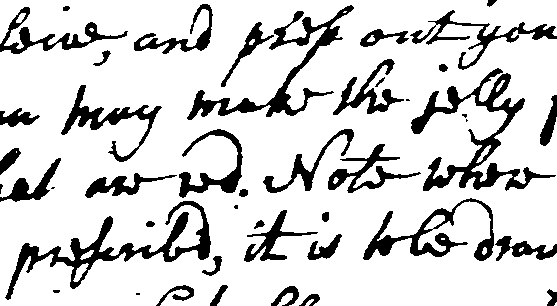 leive, and press out you
u may make the jelly p
hat are red. Note where
prescrib'd, it is to be draw